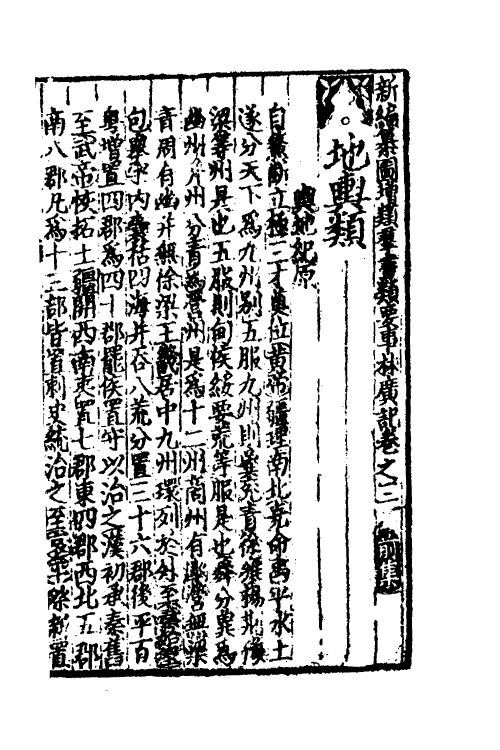 新編纂圖增類羣書類要事林廣記卷之三 前集
地輿類
輿地紀原
自鰲斷立極三才奠位黃帝疆理南北堯命禹平水土
遂分天下為九州別五服九州則冀兖青徐雍揚荆豫
梁等州是也五服則甸侯綏要荒等服是也舜分冀為
幽州并州分青為營州是為十二州商州有 營無梁
青周有幽并無徐梁王畿居中九州環列於外至秦
包舉宇内囊括四海并吞八荒分置三十六郡後平百
粤增置四郡為四十郡罷侯置守以治之漢初承秦舊
至武帝恢拓土疆關西南夷置七郡東四郡西北五郡
南八郡凡為十三部皆置刺史統治之至 際新置